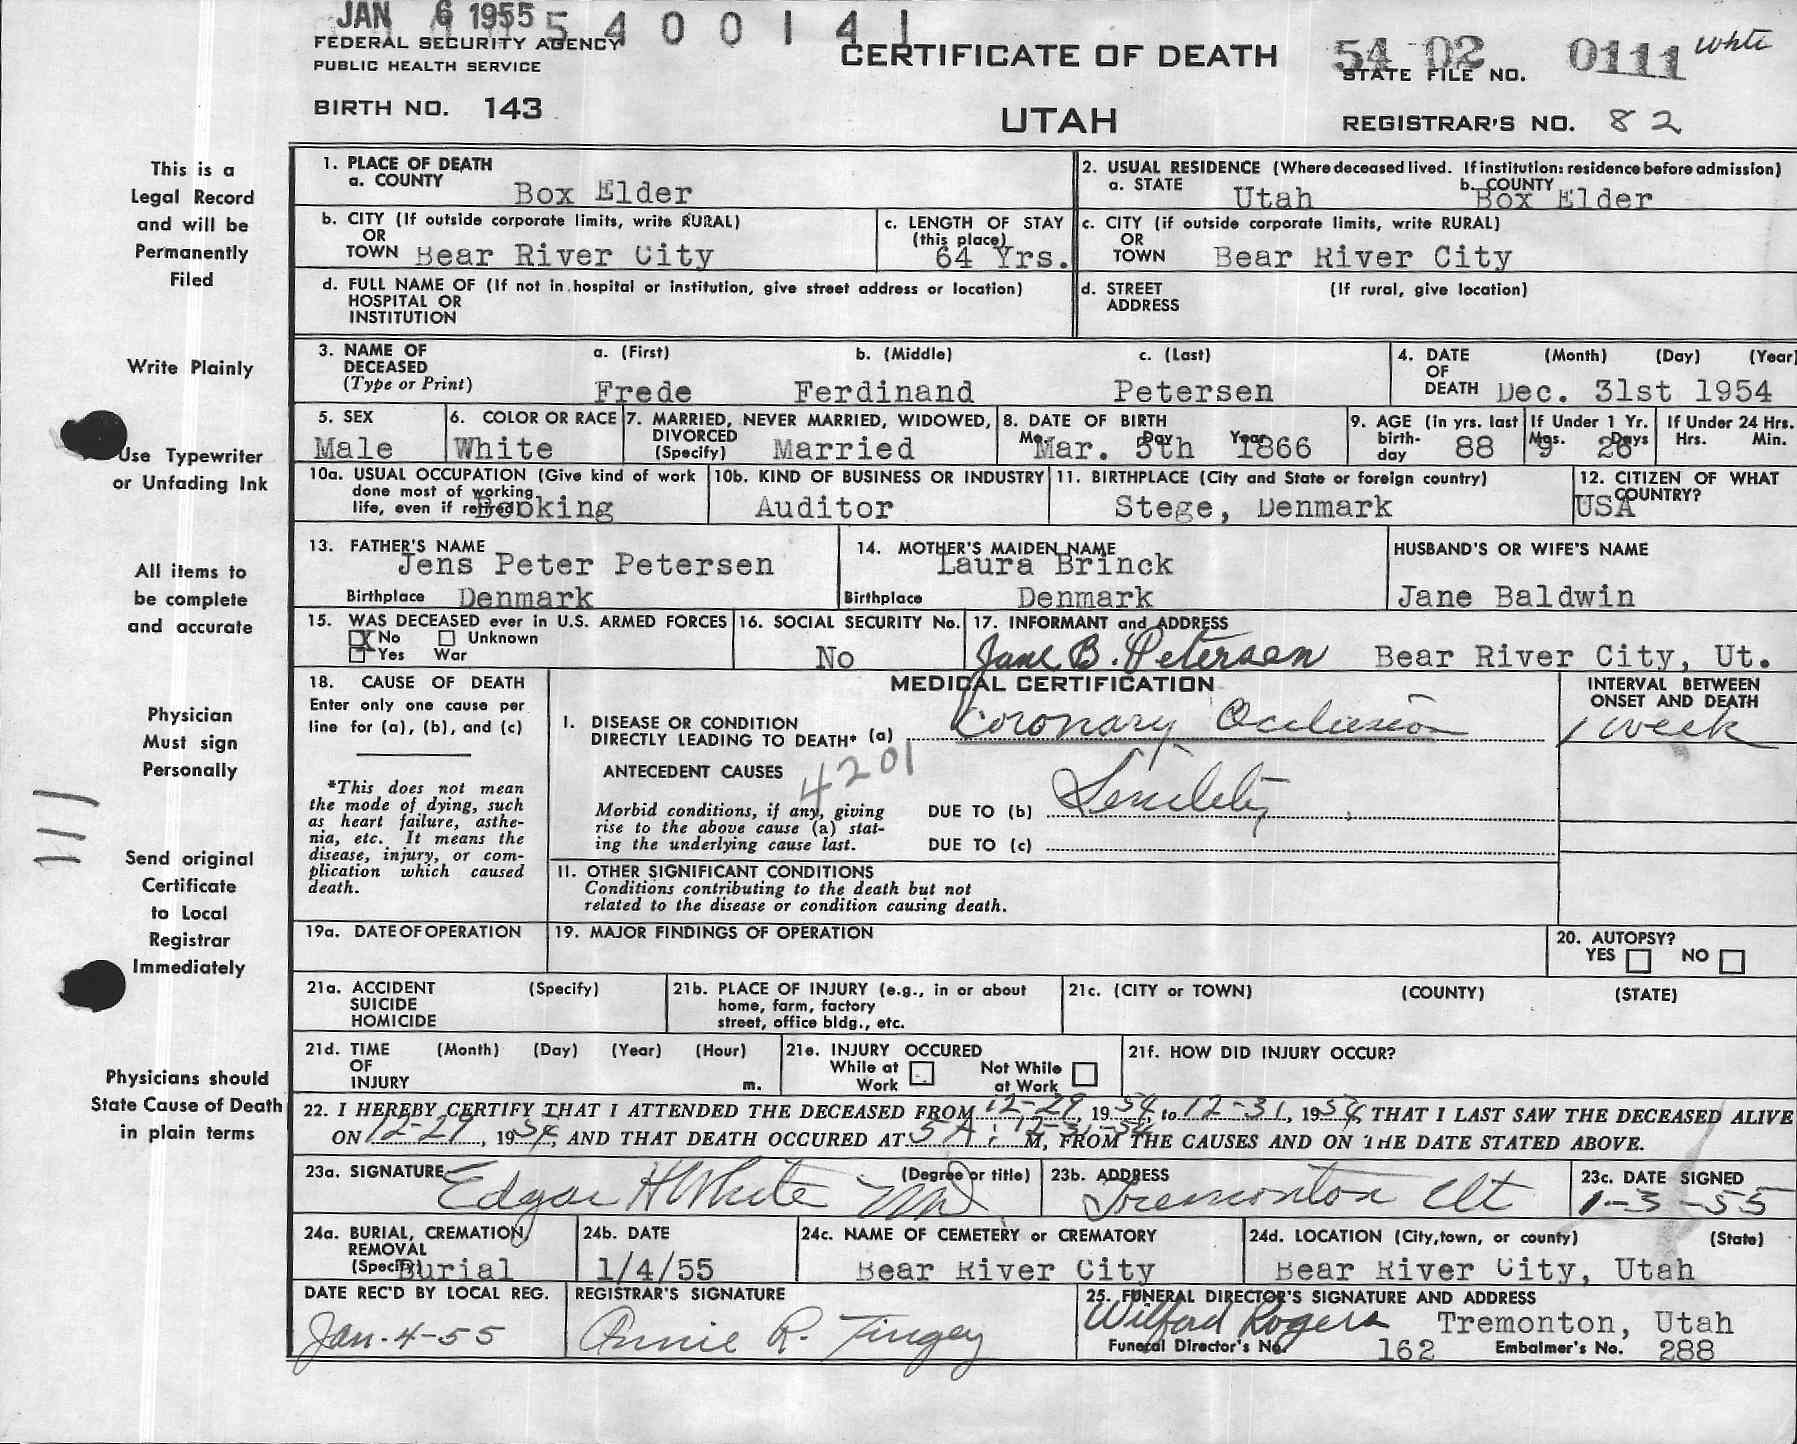 JAN 6 1955 5 4 0 0 1 4 1
FEDERAL SECURITY AGENCY
PUBLIC HEALTH SERVICE
BIRTH NO. 143
CERTIFICATE OF DEATH
UTAH
54 02 0111 white
STATE FILE NO.
REGISTRAR'S NO. 82
This is a
Legal Record
and will be
Permanently
Filed
Write Plainly
Use Typewriter
or Unfading Ink
All items to
be complete
and accurate
Physician
Must sign
Personally
111
Send original
Certificate
to Local
Registrar
Immediately
Physicians should
State Cause of Death
in plain terms
1. PLACE OF DEATH
a. COUNTY Box Elder
2. USUAL RESIDENCE (Where deceased lived. If institution: residence before admission)
a. STATE Utah b. COUNTY Box Elder
b. CITY (If outside corporate limits, write RURAL)
OR
TOWN Bear River City
c. LENGTH OF STAY
(this place)
64 Yrs.
c. CITY (if outside corporate limits, write RURAL)
OR
TOWN Bear River City
d. FULL NAME OF (If not in hospital or institution, give street address or location)
HOSPITAL OR
INSTITUTION
d. STREET (If rural, give location)
ADDRESS
3. NAME OF a. (First) b. (Middle) c. (Last)
DECEASED
(Type or Print) Frede Ferdinand Petersen
4. DATE (Month) (Day) (Year)
OF
DEATH Dec. 31st 1954
5. SEX
Male
6. COLOR OR RACE
White
7. MARRIED, NEVER MARRIED, WIDOWED,
DIVORCED
(Specify) Married
8. DATE OF BIRTH
Mo. Day Year
Mar. 5th 1866
9. AGE (in yrs. last
birth-
day 88
If Under 1 Yr.
Mos. Days
9 26
If Under 24 Hrs.
Hrs. Min.
10a. USUAL OCCUPATION (Give kind of work
done most of working
life, even if retired) Booking
10b. KIND OF BUSINESS OR INDUSTRY
Auditor
11. BIRTHPLACE (City and State or foreign country)
Stege, Denmark
12. CITIZEN OF WHAT
COUNTRY?
USA
13. FATHER'S NAME
Jens Peter Petersen
Birthplace Denmark
14. MOTHER'S MAIDEN NAME
Laura Brinck
Birthplace Denmark
HUSBAND'S OR WIFE'S NAME
Jane Baldwin
15. WAS DECEASED ever in U.S. ARMED FORCES
X No Unknown
Yes War
16. SOCIAL SECURITY No.
No
17. INFORMANT and ADDRESS
Jane B. Petersen Bear River City, Ut.
18. CAUSE OF DEATH
Enter only one cause per
line for (a), (b), and (c)
*This does not mean
the mode of dying, such
as heart failure, asthe-
nia, etc. It means the
disease, injury, or com-
plication which caused
death.
MEDICAL CERTIFICATION
I. DISEASE OR CONDITION
DIRECTLY LEADING TO DEATH* (a) Coronary Occlusion
INTERVAL BETWEEN
ONSET AND DEATH
1 week
ANTECEDENT CAUSES 4201
Morbid conditions, if any, giving
rise to the above cause (a) stat-
ing the underlying cause last.
DUE TO (b) Senility
DUE TO (c)
11. OTHER SIGNIFICANT CONDITIONS
Conditions contributing to the death but not
related to the disease or condition causing death.
19a. DATE OF OPERATION
19. MAJOR FINDINGS OF OPERATION
20. AUTOPSY?
YES NO
21a. ACCIDENT (Specify)
SUICIDE
HOMICIDE
21b. PLACE OF INJURY (e.g., in or about
home, farm, factory
street, office bldg., etc.
21c. (CITY or TOWN) (COUNTY) (STATE)
21d. TIME (Month) (Day) (Year) (Hour)
OF
INJURY m.
21e. INJURY OCCURED
While at Not While
Work at Work
21f. HOW DID INJURY OCCUR?
22. I HEREBY CERTIFY THAT I ATTENDED THE DECEASED FROM 12-29, 1954, to 12-31, 1954, THAT I LAST SAW THE DECEASED ALIVE
ON 12-29, 1954, AND THAT DEATH OCCURED AT 5 A. 12-31-54 M, FROM THE CAUSES AND ON THE DATE STATED ABOVE.
23a. SIGNATURE (Degree or title)
Edgar H White MD
23b. ADDRESS
Tremonton Ut
23c. DATE SIGNED
1-3-55
24a. BURIAL, CREMATION,
REMOVAL
(Specify) Burial
24b. DATE
1/4/55
24c. NAME OF CEMETERY or CREMATORY
Bear River City
24d. LOCATION (City, town, or county) (State)
Bear River City, Utah
DATE REC'D BY LOCAL REG.
Jan. 4-55
REGISTRAR'S SIGNATURE
Annie R. Tingey
25. FUNERAL DIRECTOR'S SIGNATURE AND ADDRESS
Wilford Rogers Tremonton, Utah
Funeral Director's No. 162 Embalmer's No. 288